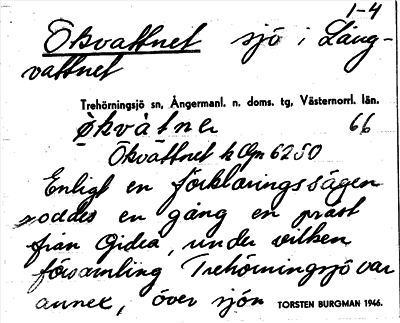 1-4
Ökvattnet sjö i Lång-
vattnet
Trehörningsjö sn, Ångermanl. n. doms. tg, Västernorrl. län.
økvàtne 66
Ökvattnet h Ogn 6250
Enligt en förklaringssägen
roddes en gång en präst
från Gideå, under vilken
församling Trehörningsjö var
annex, över sjön TORSTEN BURGMAN 1946.